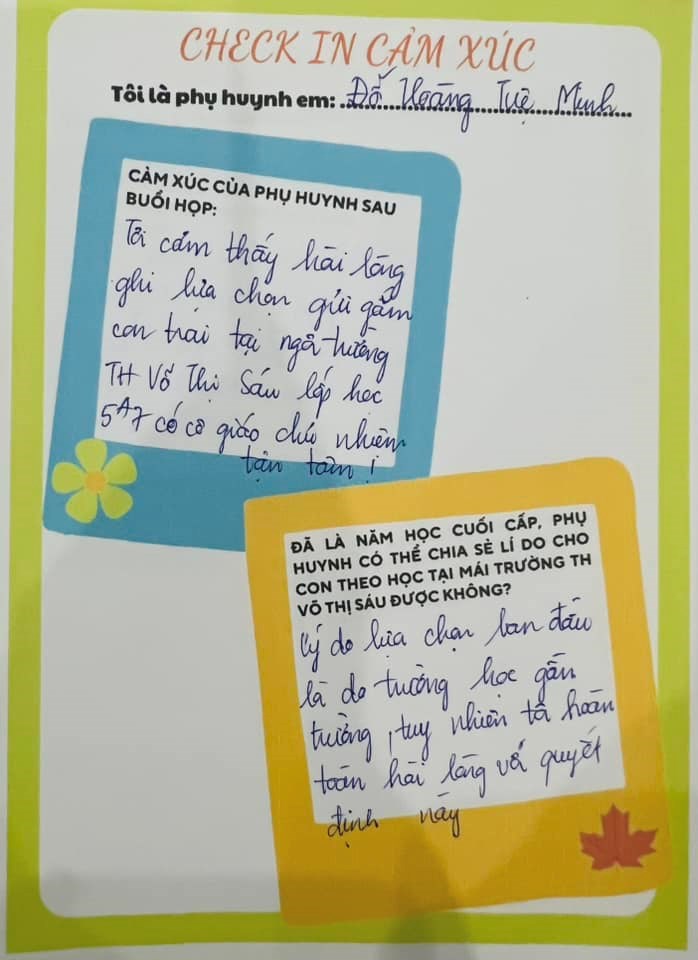 CHECK IN CẢM XÚC
Tôi là phụ huynh em: Đỗ Hoàng Tuệ Minh
CẢM XÚC CỦA PHỤ HUYNH SAU
BUỔI HỌP:
Tôi cảm thấy hài lòng
ghi lựa chọn gửi gắm
con trai tại ngôi trường
TH Võ Thị Sáu lớp học
5A7 có cô giáo chủ nhiệm
tận tâm!
ĐÃ LÀ NĂM HỌC CUỐI CẤP, PHỤ
HUYNH CÓ THỂ CHIA SẺ LÍ DO CHO
CON THEO HỌC TẠI MÁI TRƯỜNG TH
VÕ THỊ SÁU ĐƯỢC KHÔNG?
Lý do lựa chọn ban đầu
là do trường học gần
trường, tuy nhiên tôi hoàn
toàn hài lòng với quyết
định này